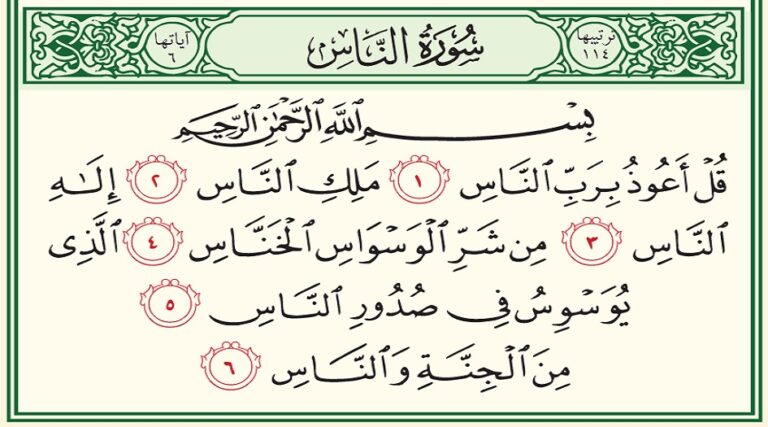 ترتيبها ١١٤
سُورَةُ النَّاسِ
آياتها ٦
بِسْمِ اللَّهِ الرَّحْمَٰنِ الرَّحِيمِ
قُلْ أَعُوذُ بِرَبِّ ٱلنَّاسِ ١ مَلِكِ ٱلنَّاسِ ٢ إِلَٰهِ
ٱلنَّاسِ ٣ مِن شَرِّ ٱلْوَسْوَاسِ ٱلْخَنَّاسِ ٤ ٱلَّذِى
يُوَسْوِسُ فِى صُدُورِ ٱلنَّاسِ ٥
مِنَ ٱلْجِنَّةِ وَٱلنَّاسِ ٦